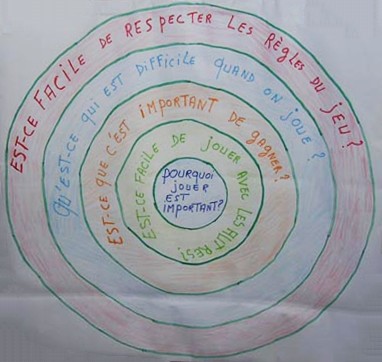 EST-CE FACILE DE RESPECTER LES RÈGLES DU JEU ?
QU'EST-CE QUI EST DIFFICILE QUAND ON JOUE ?
EST-CE QUE C'EST IMPORTANT DE GAGNER ?
EST-CE FACILE DE JOUER AVEC LES AUTRES?
POURQUOI
JOUER
EST
IMPORTANT?